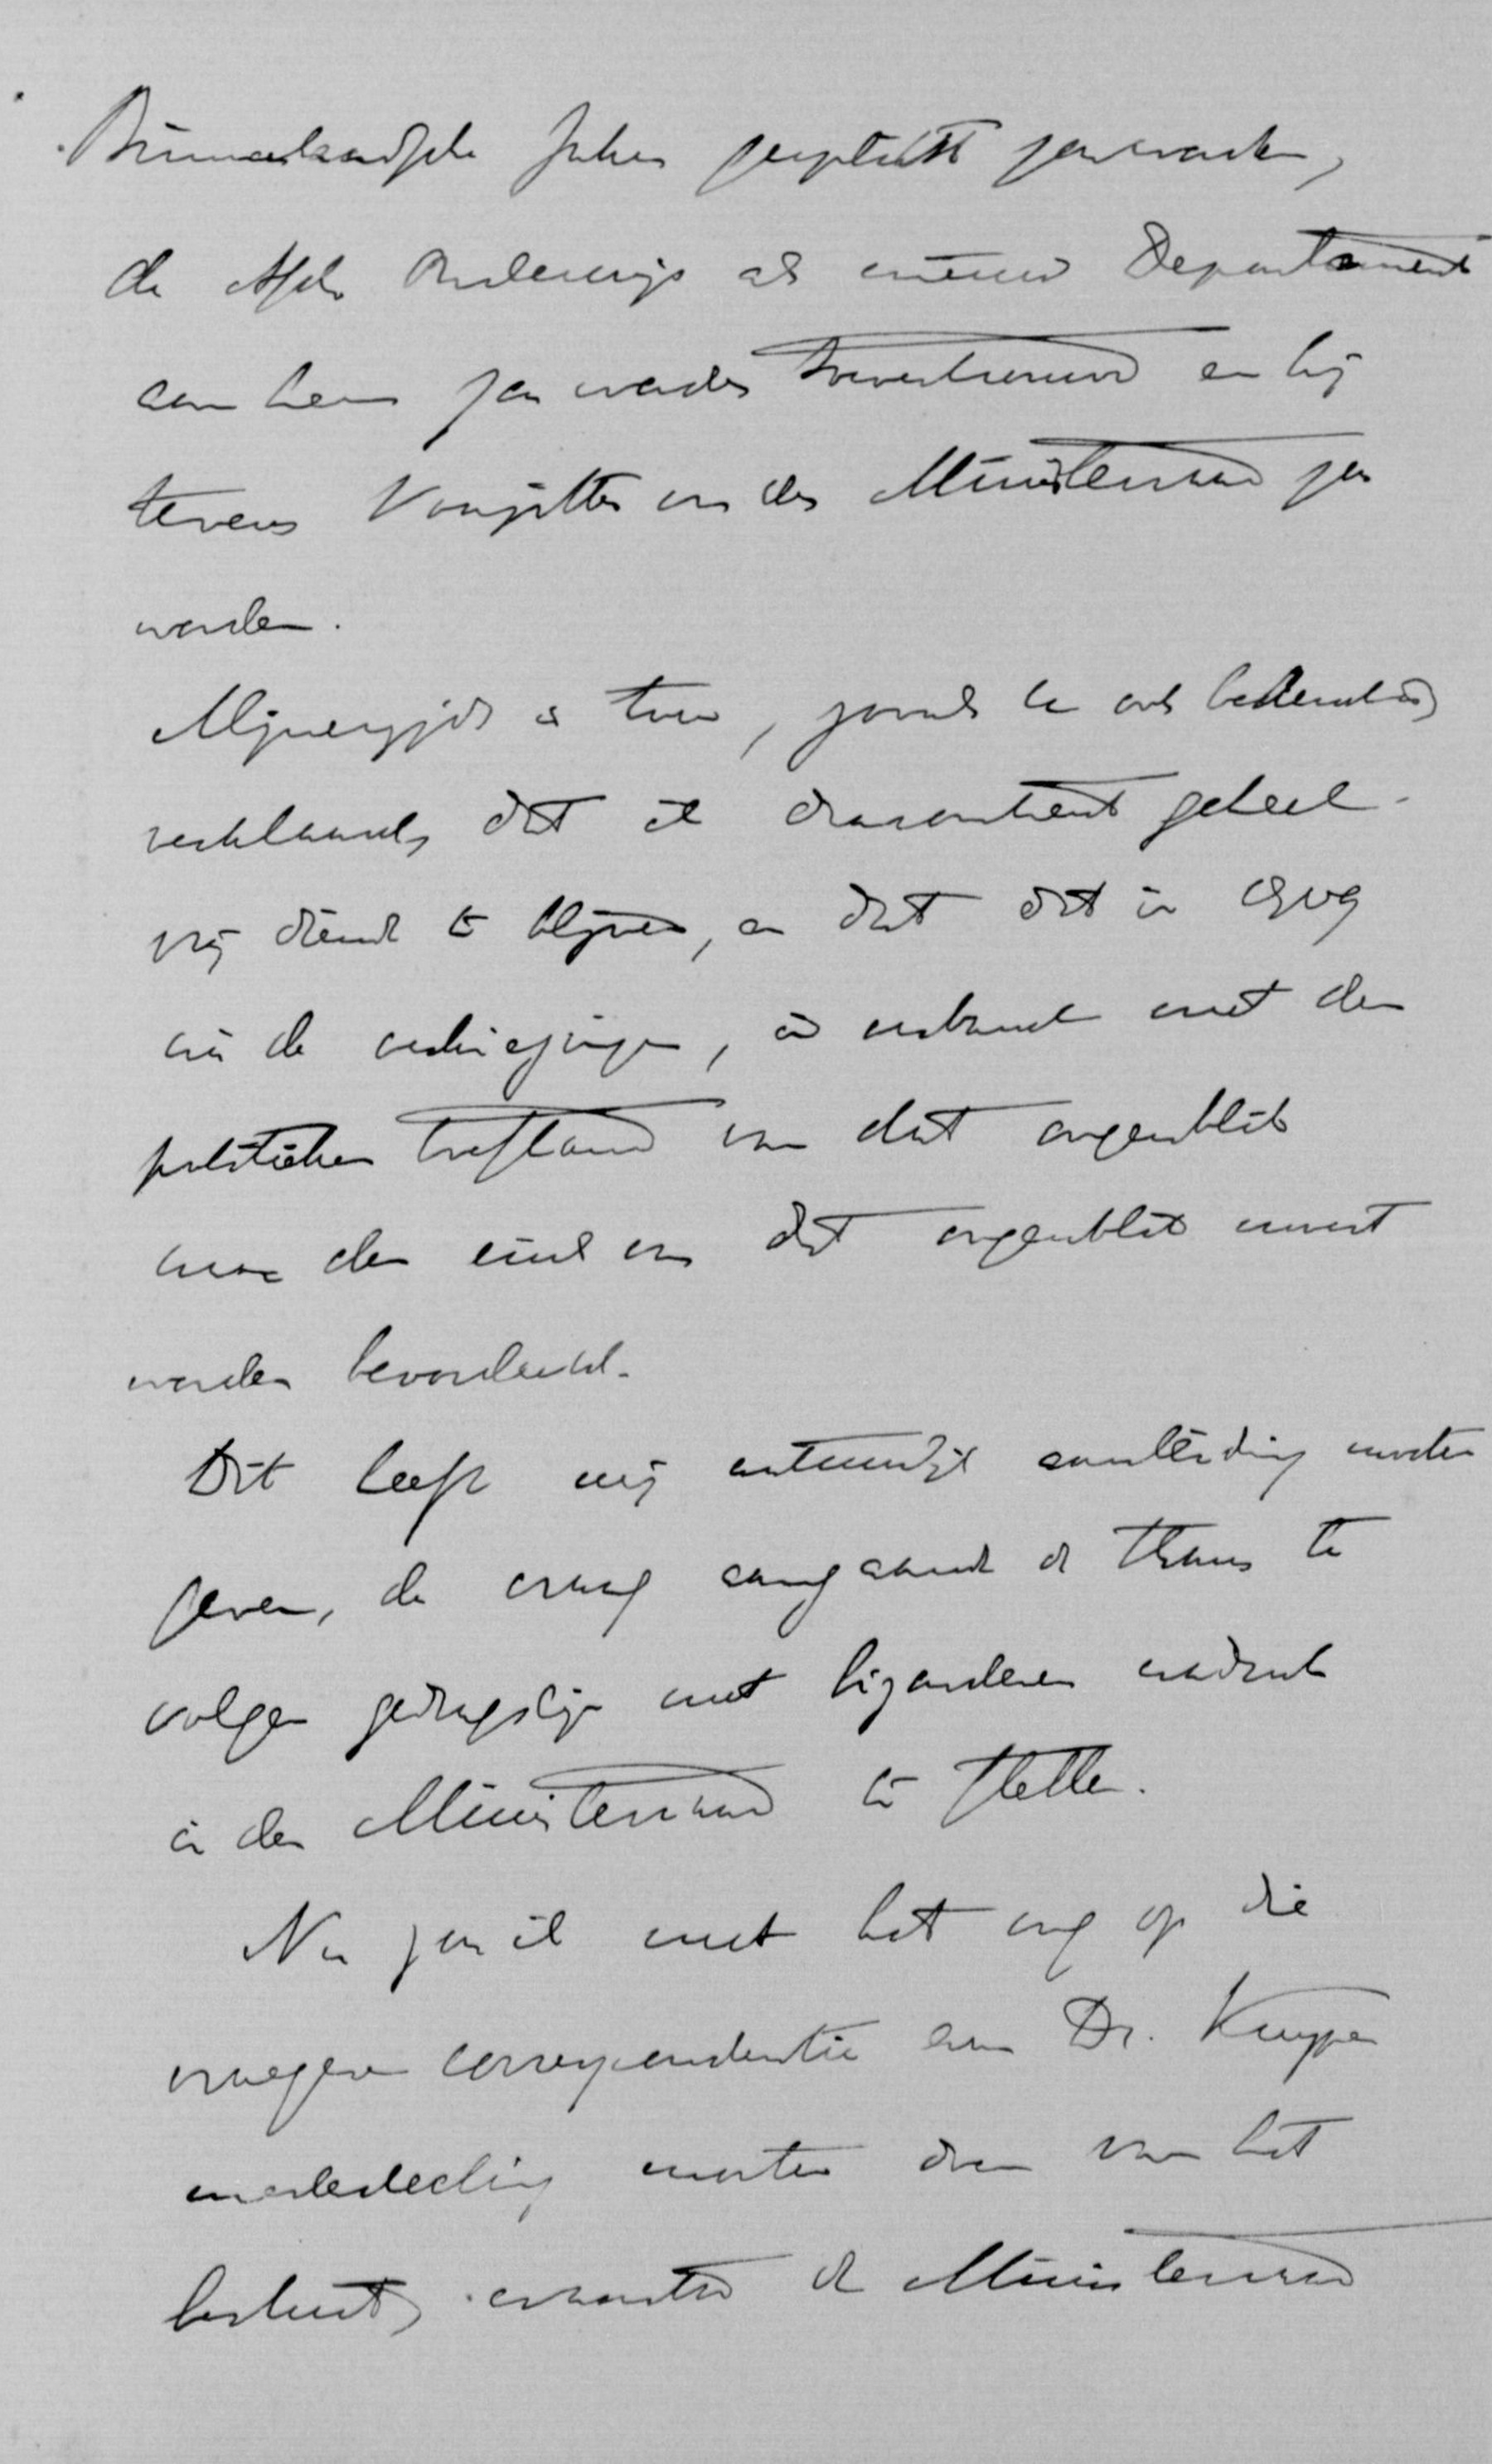 Binnenlandsche Zaken gesplitst zou worden,
de Afd. Onderwijs als nieuw Departement
aan hem zou worden toevertrouwd en hij
tevens Voorzitter van den Ministerraad zou
worden.
Mijnerzijds is toen, zooals U ook bekend is,
verklaard, dat ik daaromtrent geheel
vrij diende te blijven, en dat dit in 1909
na de verkiezingen, in verband met den
politieken toestand van dat oogenblik
naar den eisch van dat oogenblik moest
worden beoordeeld.
Dit heeft mij natuurlijk aanleiding moeten
geven, de vraag aangaande de thans te
volgen gedragslijn met bijzonderen nadruk
in den Ministerraad te stellen.
Nu zou ik met het oog op die
vroegere correspondentie aan Dr. Kuyper
mededeeling moeten doen van het
besluit, waartoe de Ministerraad